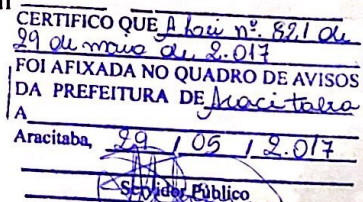 CERTIFICO QUE A Lei nº. 821 de
29 de maio de 2.017
FOI AFIXADA NO QUADRO DE AVISOS
DA PREFEITURA DE Aracitaba
A
Aracitaba, 29 / 05 / 2.017
Servidor Público